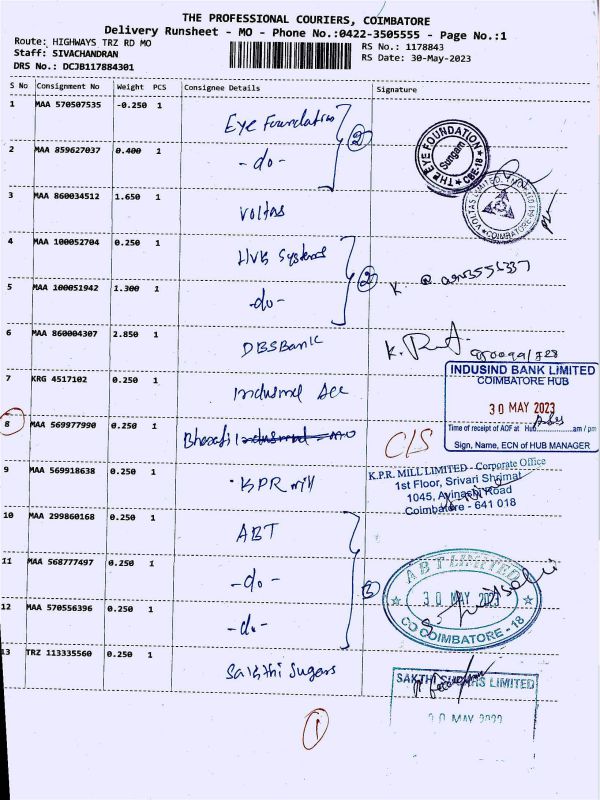 THE PROFESSIONAL COURIERS, COIMBATORE
Delivery Runsheet - MO - Phone No.:0422-3505555 - Page No.:1
Route: HIGHWAYS TRZ RD MO
RS No.: 1178843
Staff: SIVACHANDRAN
RS Date: 30-May-2023
DRS No.: DCJB117884301
S No Consignment No Weight PCS Consignee Details Signature
1 MAA 570507535 -0.250 1 Eye Foundation
2
THE EYE FOUNDATION
Sungam
CBE-18
2 MAA 859627037 0.400 1 -do-
3 MAA 860034512 1.650 1 Voltas
VOLTAS LIMITED
COIMBATORE 641
4 MAA 100052704 0.250 1 Systems
2
5 MAA 100051942 1.300 1 -do-
K
6 MAA 860004307 2.850 1 DBS Bank
K.
INDUSIND BANK LIMITED
COIMBATORE HUB
7 KRG 4517102 0.250 1
30 MAY 2023
Time of receipt of AOF at Hub am / pm
Sign, Name, ECN of HUB MANAGER
8 MAA 569977990 0.250 1 Bharati
C/S
9 MAA 569918638 0.250 1 KPR mill
K.P.R. MILL LIMITED - Corporate Office
1st Floor, Srivari Shrimat
1045, Avinashi Road
Coimbatore - 641 018
10 MAA 299860168 0.250 1 ABT
11 MAA 568777497 0.250 1 -do-
3
ABT LIMITED
30 MAY 2023
COIMBATORE - 18
12 MAA 570556396 0.250 1 -do-
13 TRZ 113335560 0.250 1 Sakthi Sugars
SAKTHI SUGARS LIMITED
1